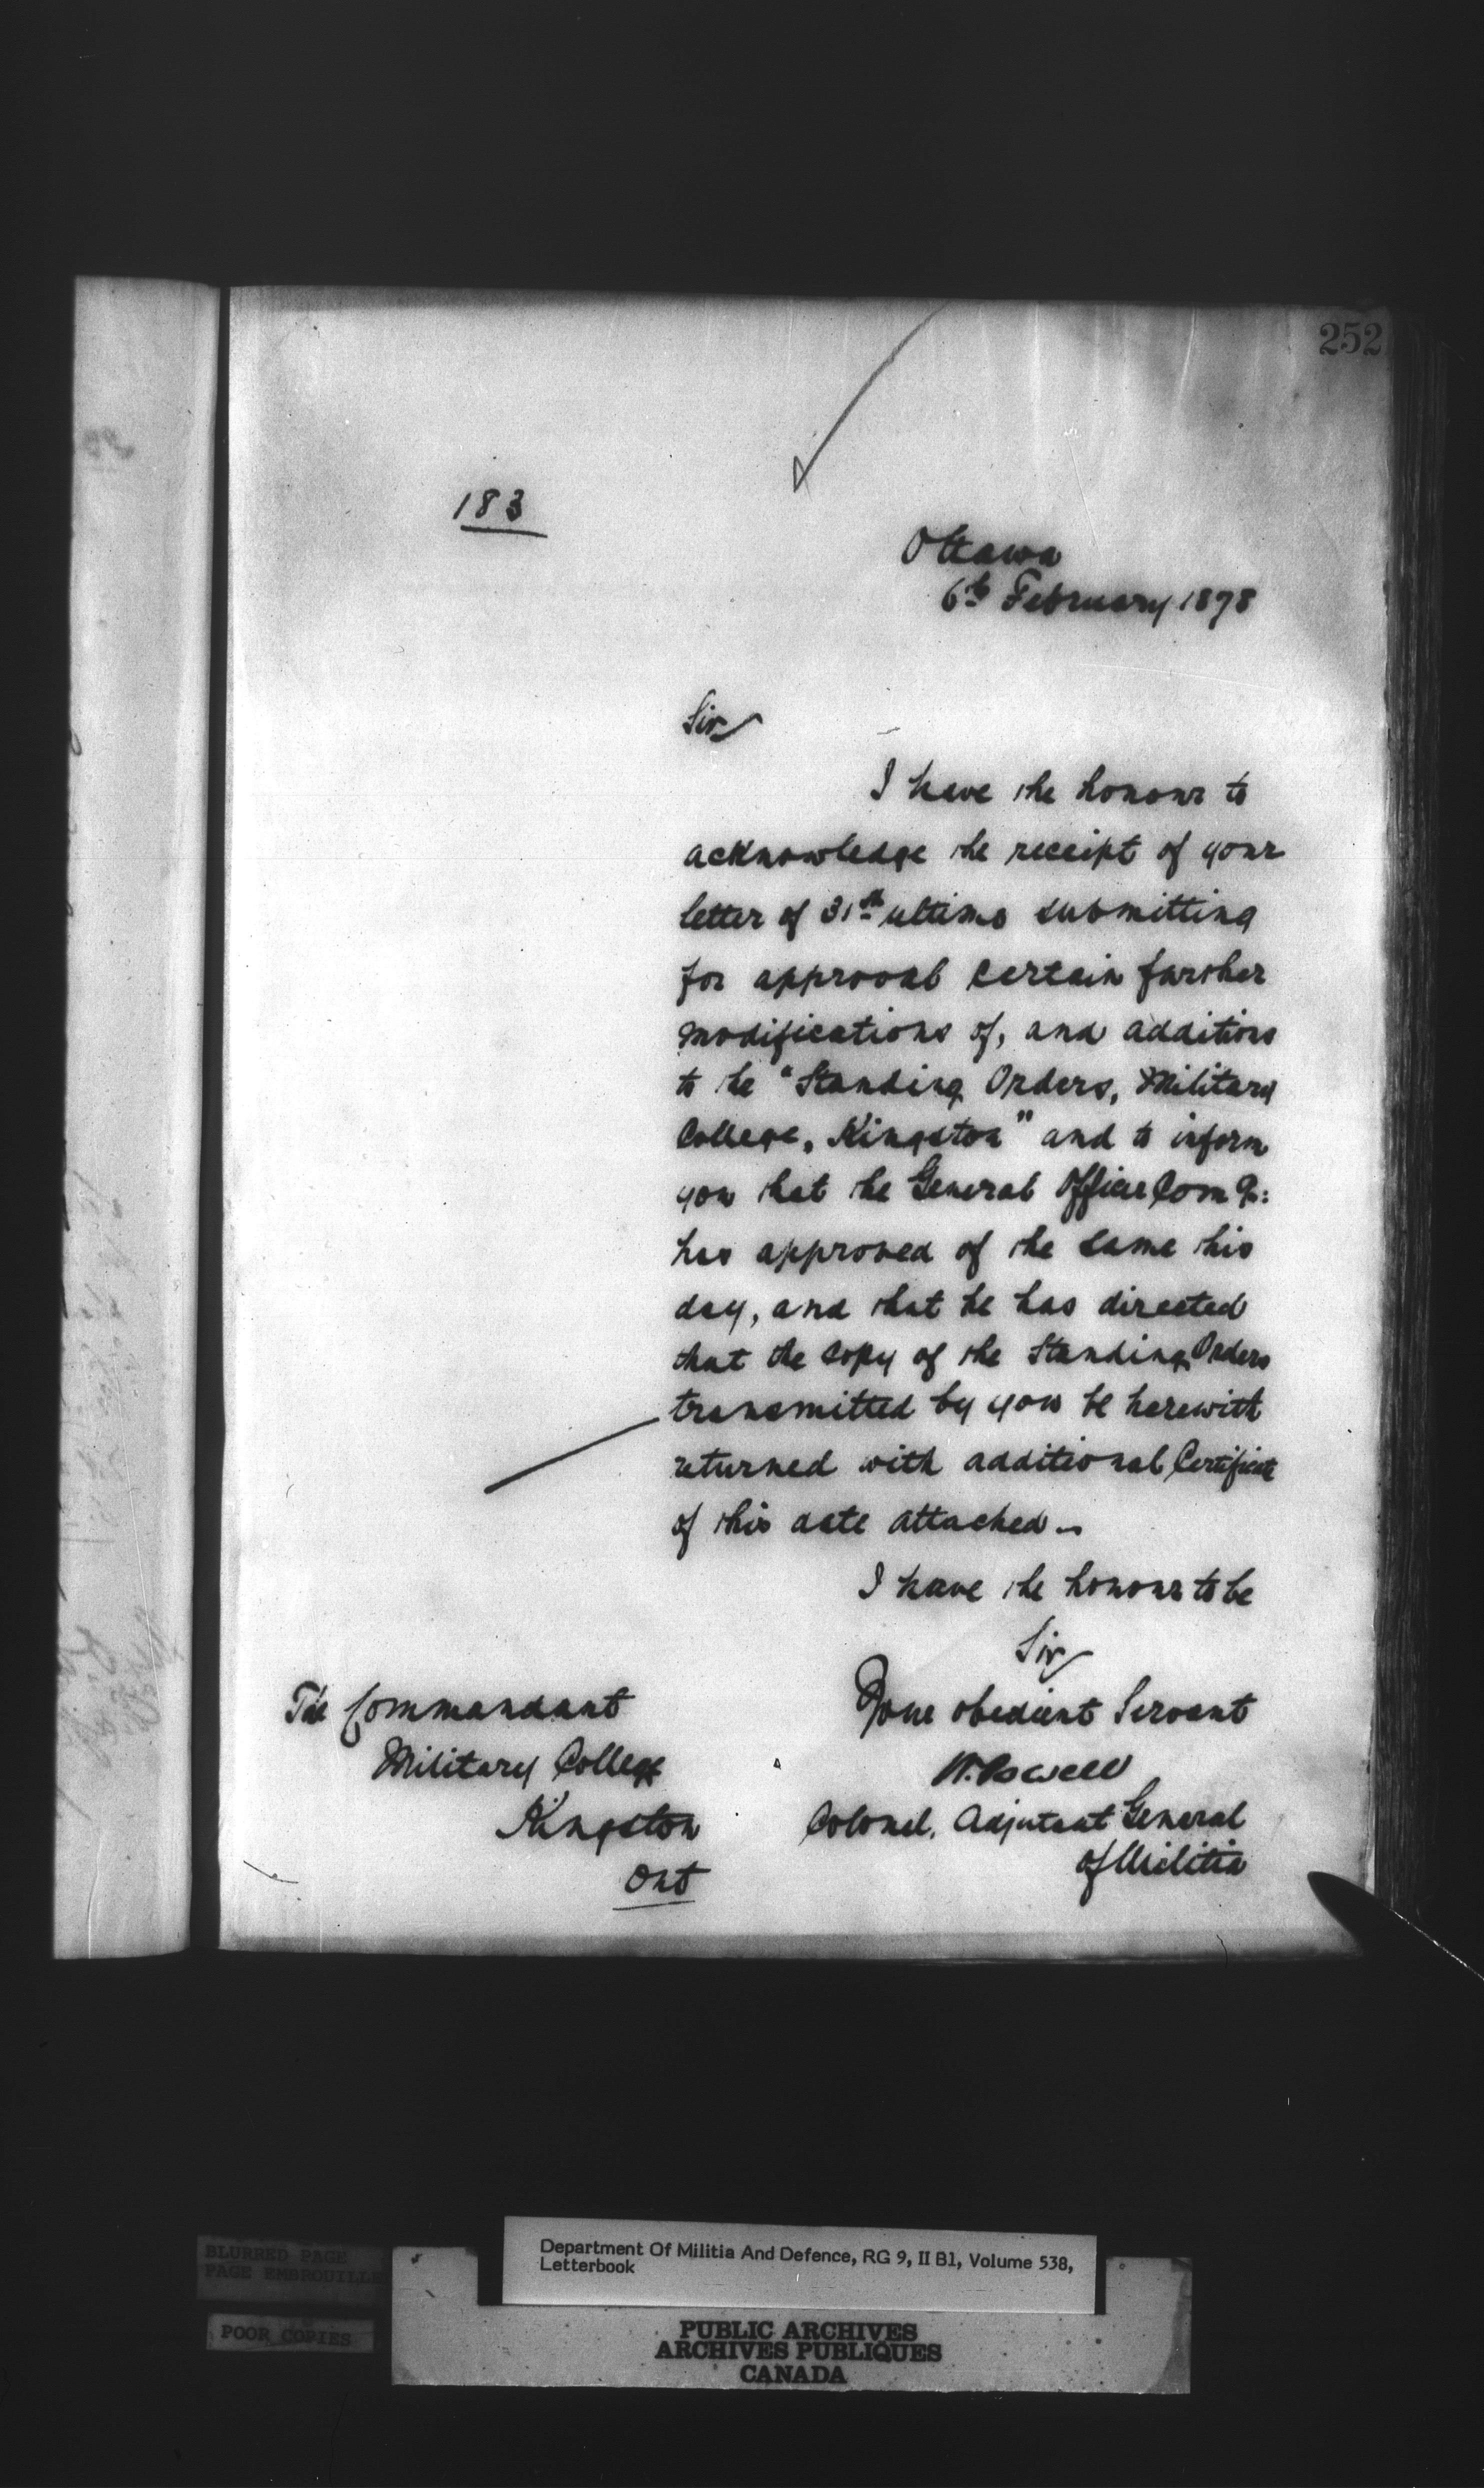 252
183
Ottawa
6th February 1878
Sir
I have the honour to
acknowledge the receipt of your
letter of 31st ultimo submitting
for approval certain further
modifications of, and additions
to the "Standing Orders, Military
College, Kingston" and to inform
you that the General Officer Comg:
has approved of the same this
day, and that he has directed
that the copy of the Standing Orders
transmitted by you be herewith
returned with additional Certificate
of this date attached.
I have the honour to be
Sir
Your obedient Servant
W. Powell
Colonel, Adjutant General
of Militia
The Commandant
Military College
Kingston
Ont
BLURRED PAGE
PAGE EMBROUILLE
POOR COPIES
Department Of Militia And Defence, RG 9, II B1, Volume 538,
Letterbook
PUBLIC ARCHIVES
ARCHIVES PUBLIQUES
CANADA